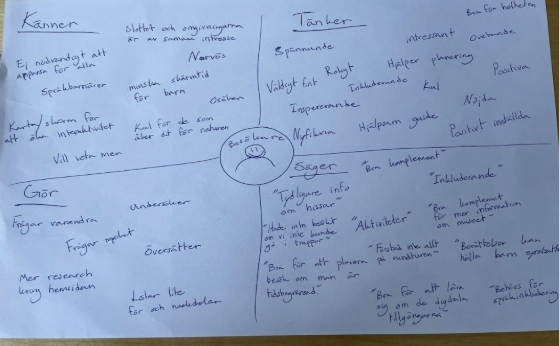 Känner
Slottet och omgivningarna
är av samma intresse
Ej nödvändigt att
apparsa för alla
Nervös
Språkbarriärer
minska skärmtid
för barn
Osäker
Karta/skärm för
att öka interaktivitet
Kul för de som
åker dit för naturen
Vill veta mer
Tänker
Bra för helheten
Spännande
intressant
Ovetande
Väldigt fint
Roligt
Hjälper planering
Inkluderande
Kul
Positiva
Inspererande
Nöjda
Nyfikna
Hjälpsam guide
Positivt inställda
Besökare
Gör
Frågar varandra
Undersöker
Frågar mycket
Översätter
Mer research
kring hemsidan
Listar lite
för och nackdelar
Säger
"Bra komplement"
"Tydligare info
om hissar"
"Inkluderande"
"Hade inte besökt
om vi inte kunde
gå i trappor"
"Aktiviteter"
"Bra komplement
för mer information
om museet"
"Bra för att planera
besök om man är
tidsbegränsad"
"Förstod inte allt
på rundturen"
"Berättelser kan
hålla barn
"Bra för att lära
sig om de digitala
tillgångarna"
"Behövs för
språkinkludering"